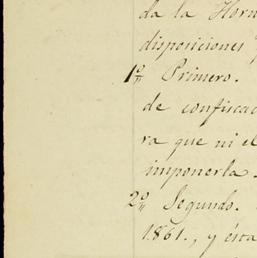 da la Horn
disposiciones
1º Primero.
de confiscac
ra que ni el
imponerla.
2º Segundo.
1861., y ésta